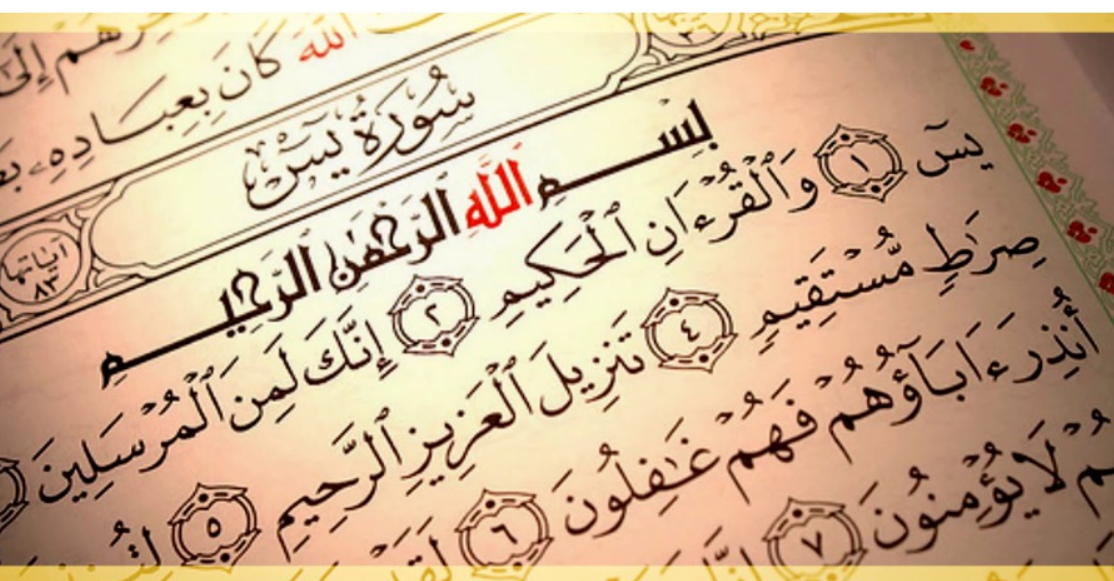 الله كَانَ بِعِبَادِهِۦ
سُورَةُ يسٓ
آيَاتُهَا ٨٣
بِسْمِ اللَّهِ الرَّحْمَٰنِ الرَّحِيمِ
يسٓ ١ وَٱلْقُرْءَانِ ٱلْحَكِيمِ ٢ إِنَّكَ لَمِنَ ٱلْمُرْسَلِينَ
صِرَٰطٍ مُّسْتَقِيمٍ ٤ تَنزِيلَ ٱلْعَزِيزِ ٱلرَّحِيمِ ٥
أُنذِرَ ءَابَآؤُهُمْ فَهُمْ غَٰفِلُونَ ٦
لَا يُؤْمِنُونَ ٧